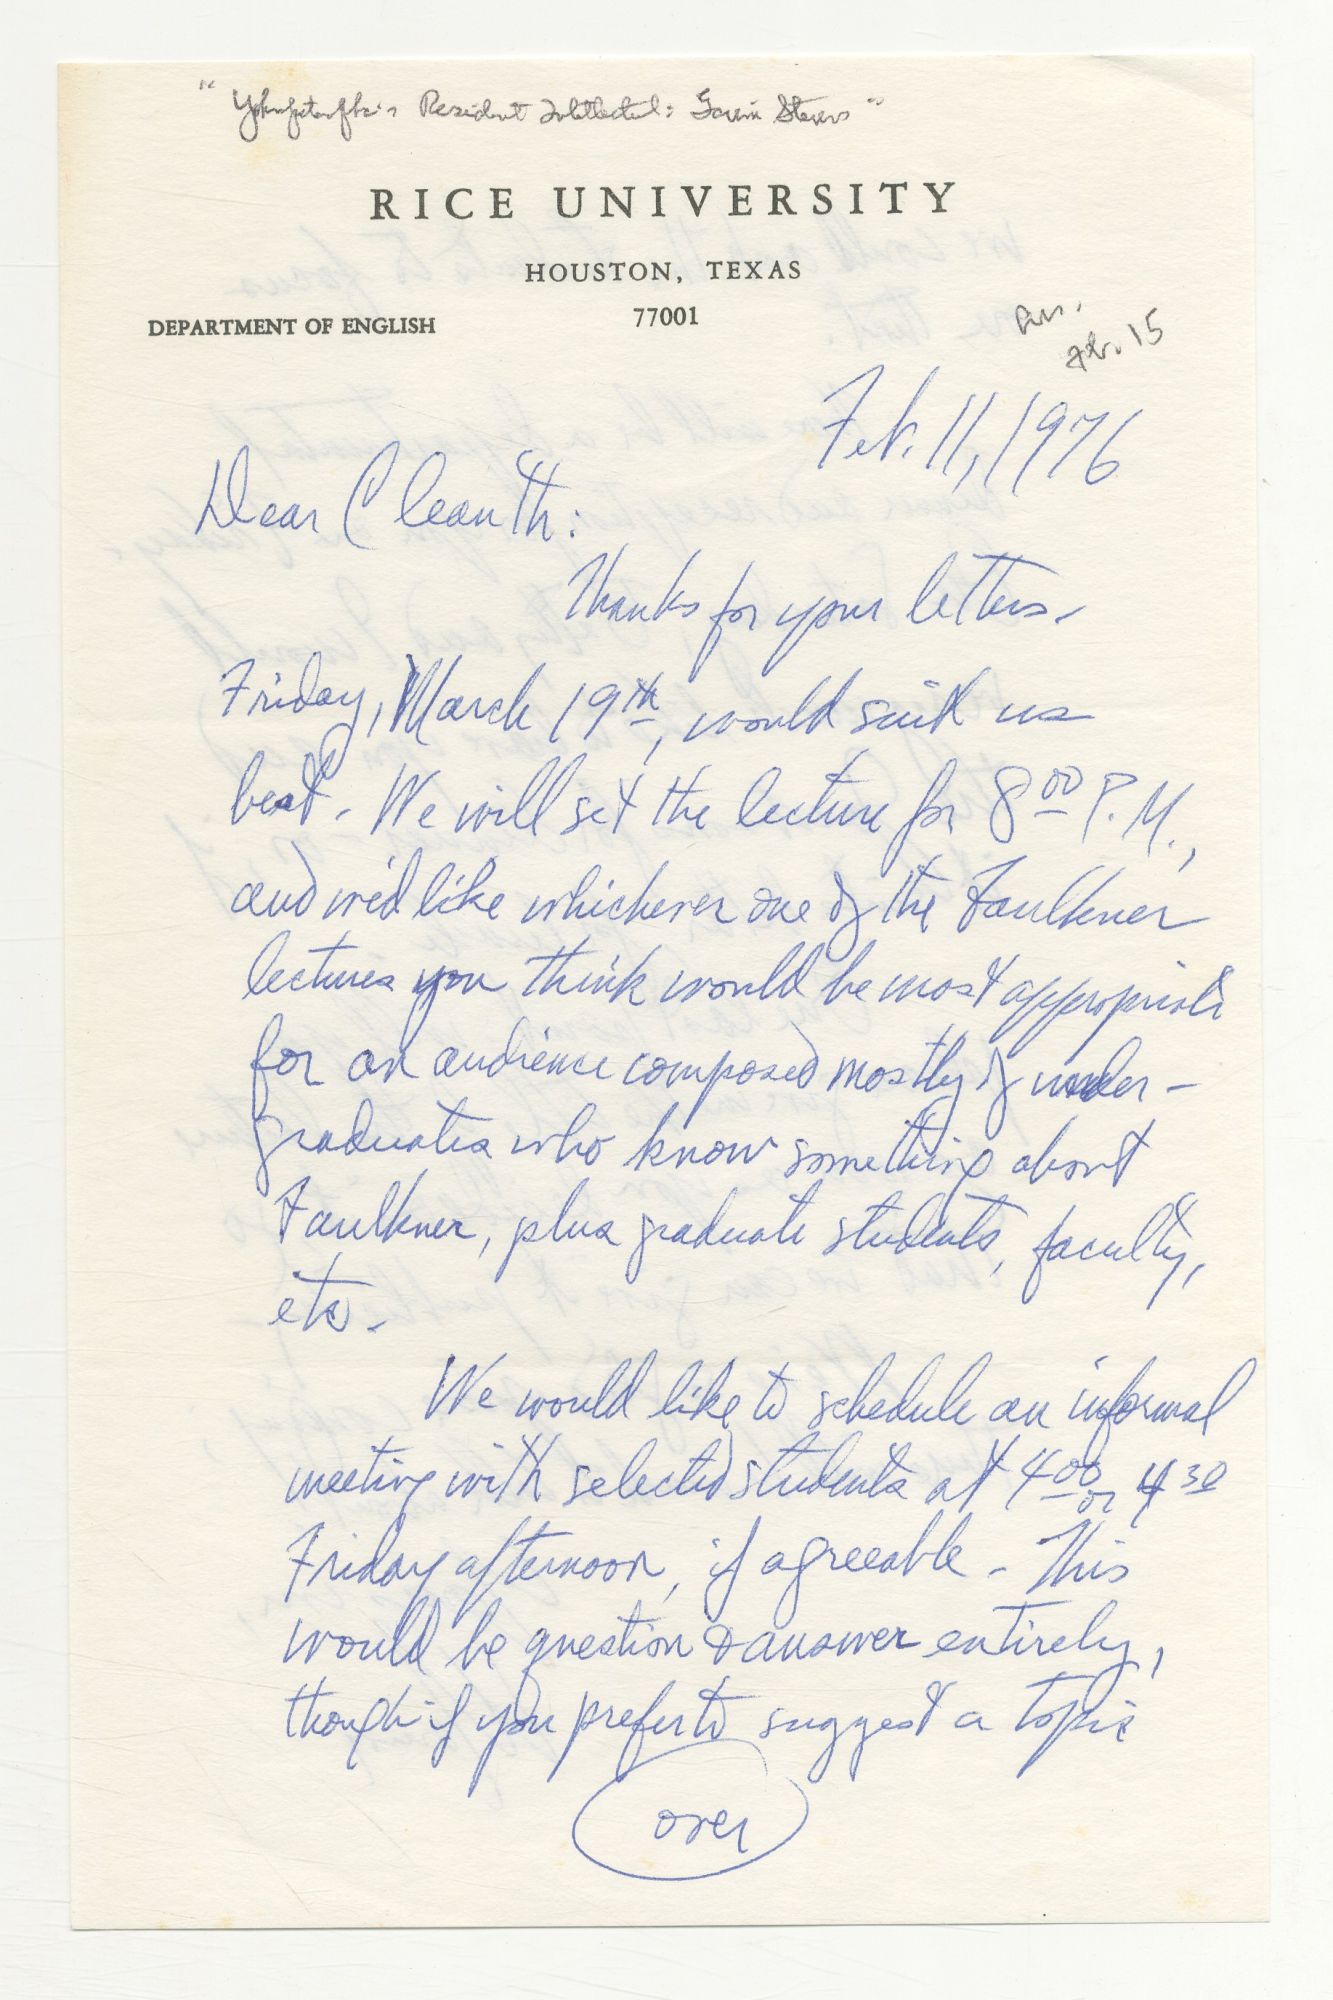 "Yoknapatawpha's Resident Intellectual: Gavin Stevens"
RICE UNIVERSITY
HOUSTON, TEXAS
77001
DEPARTMENT OF ENGLISH
Feb. 15
Feb. 11, 1976
Dear Cleanth:
Thanks for your letters.
Friday, March 19th, would suit us
best. We will set the lecture for 8:00 P.M.,
and we'd like whichever one of the Faulkner
lectures you think would be most appropriate
for an audience composed mostly of under-
graduates who know something about
Faulkner, plus graduate students, faculty,
etc.
We would like to schedule an informal
meeting with selected students at 4:00 or 4:30
Friday afternoon, if agreeable. This
would be question & answer entirely,
though if you prefer to suggest a topic
over